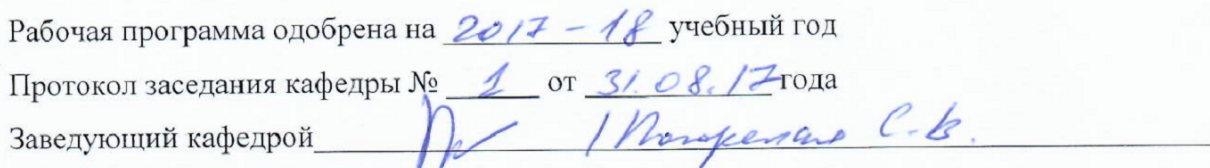 Рабочая программа одобрена на 2017 - 18 учебный год
Протокол заседания кафедры № 1 от 31.08.17 года
Заведующий кафедрой / С.В.